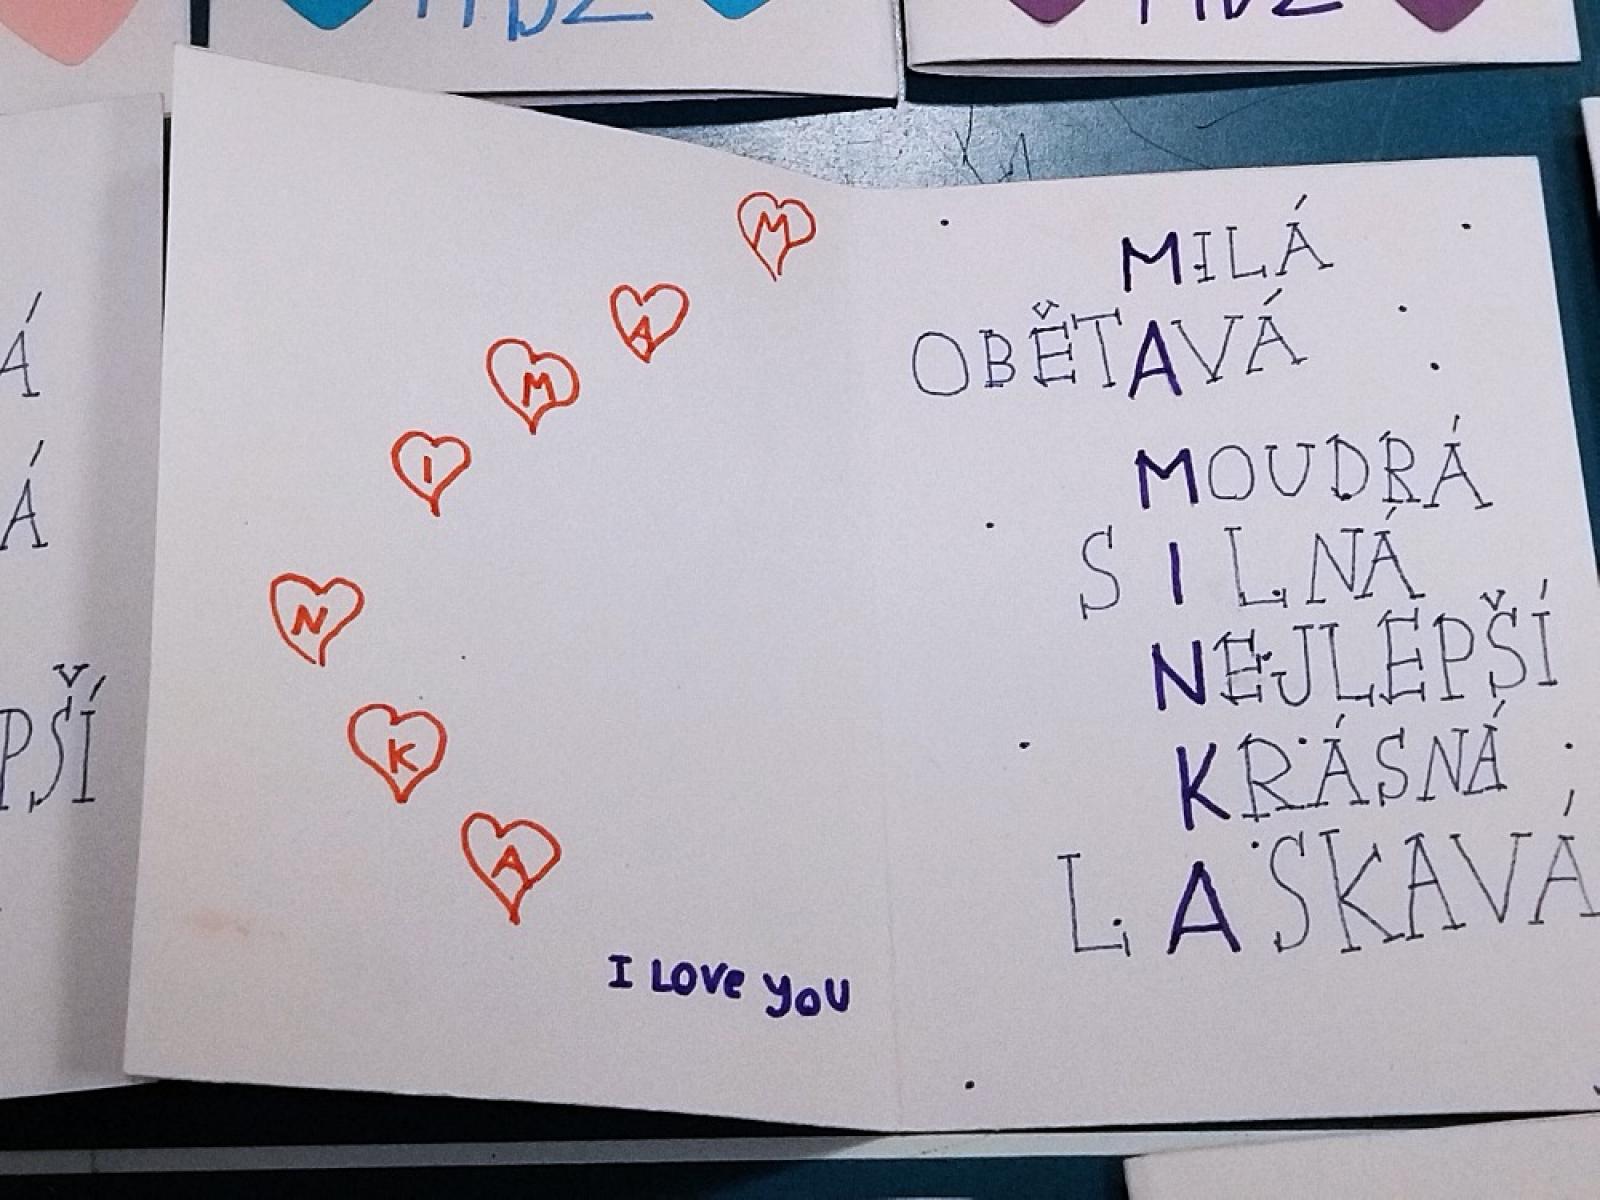 MDZ
MDZ
M
A
M
I
N
K
A
I LOVE YOU
MILÁ
OBĚTAVÁ
MOUDRÁ
SILNÁ
NEJLEPŠÍ
KRÁSNÁ
LASKAVÁ
Á
Á
PŠÍ